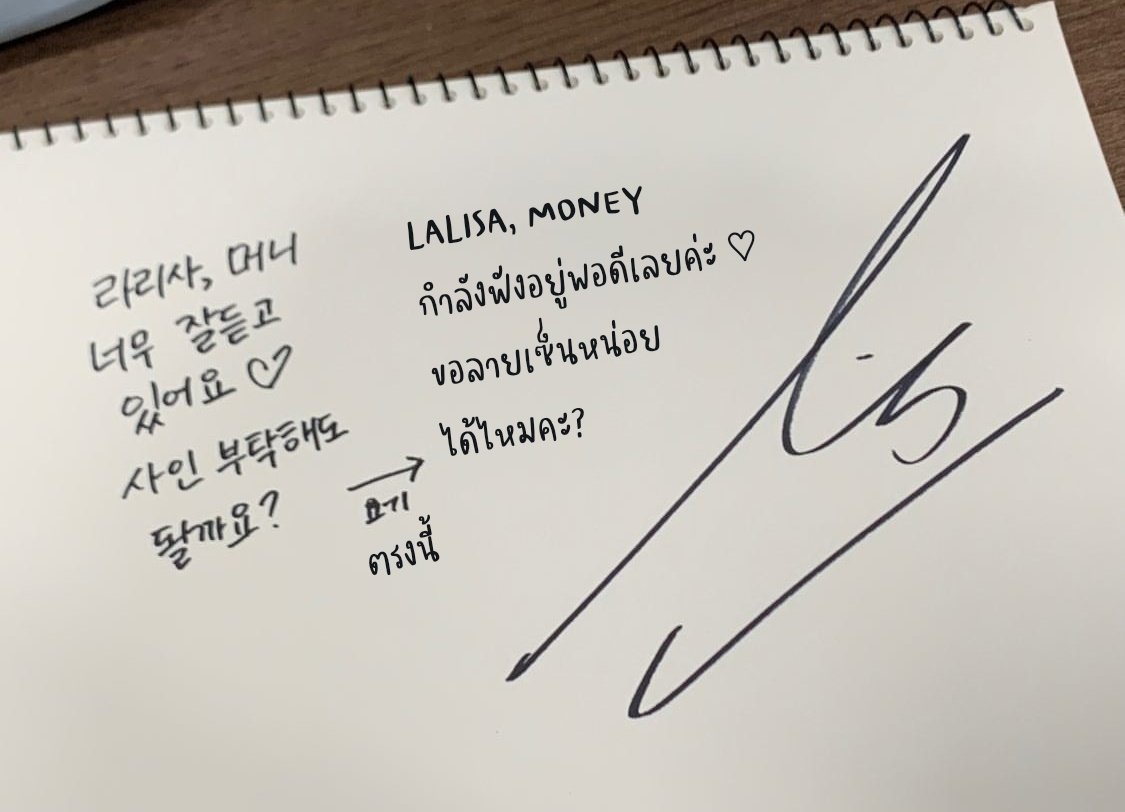 라리사, 머니
너무 잘듣고
있어요 ♡
사인 부탁해도
돨까요?
요기
LALISA, MONEY
กำลังฟังอยู่พอดีเลยค่ะ ♡
ขอลายเซ็นหน่อย
ได้ไหมคะ?
ตรงนี้